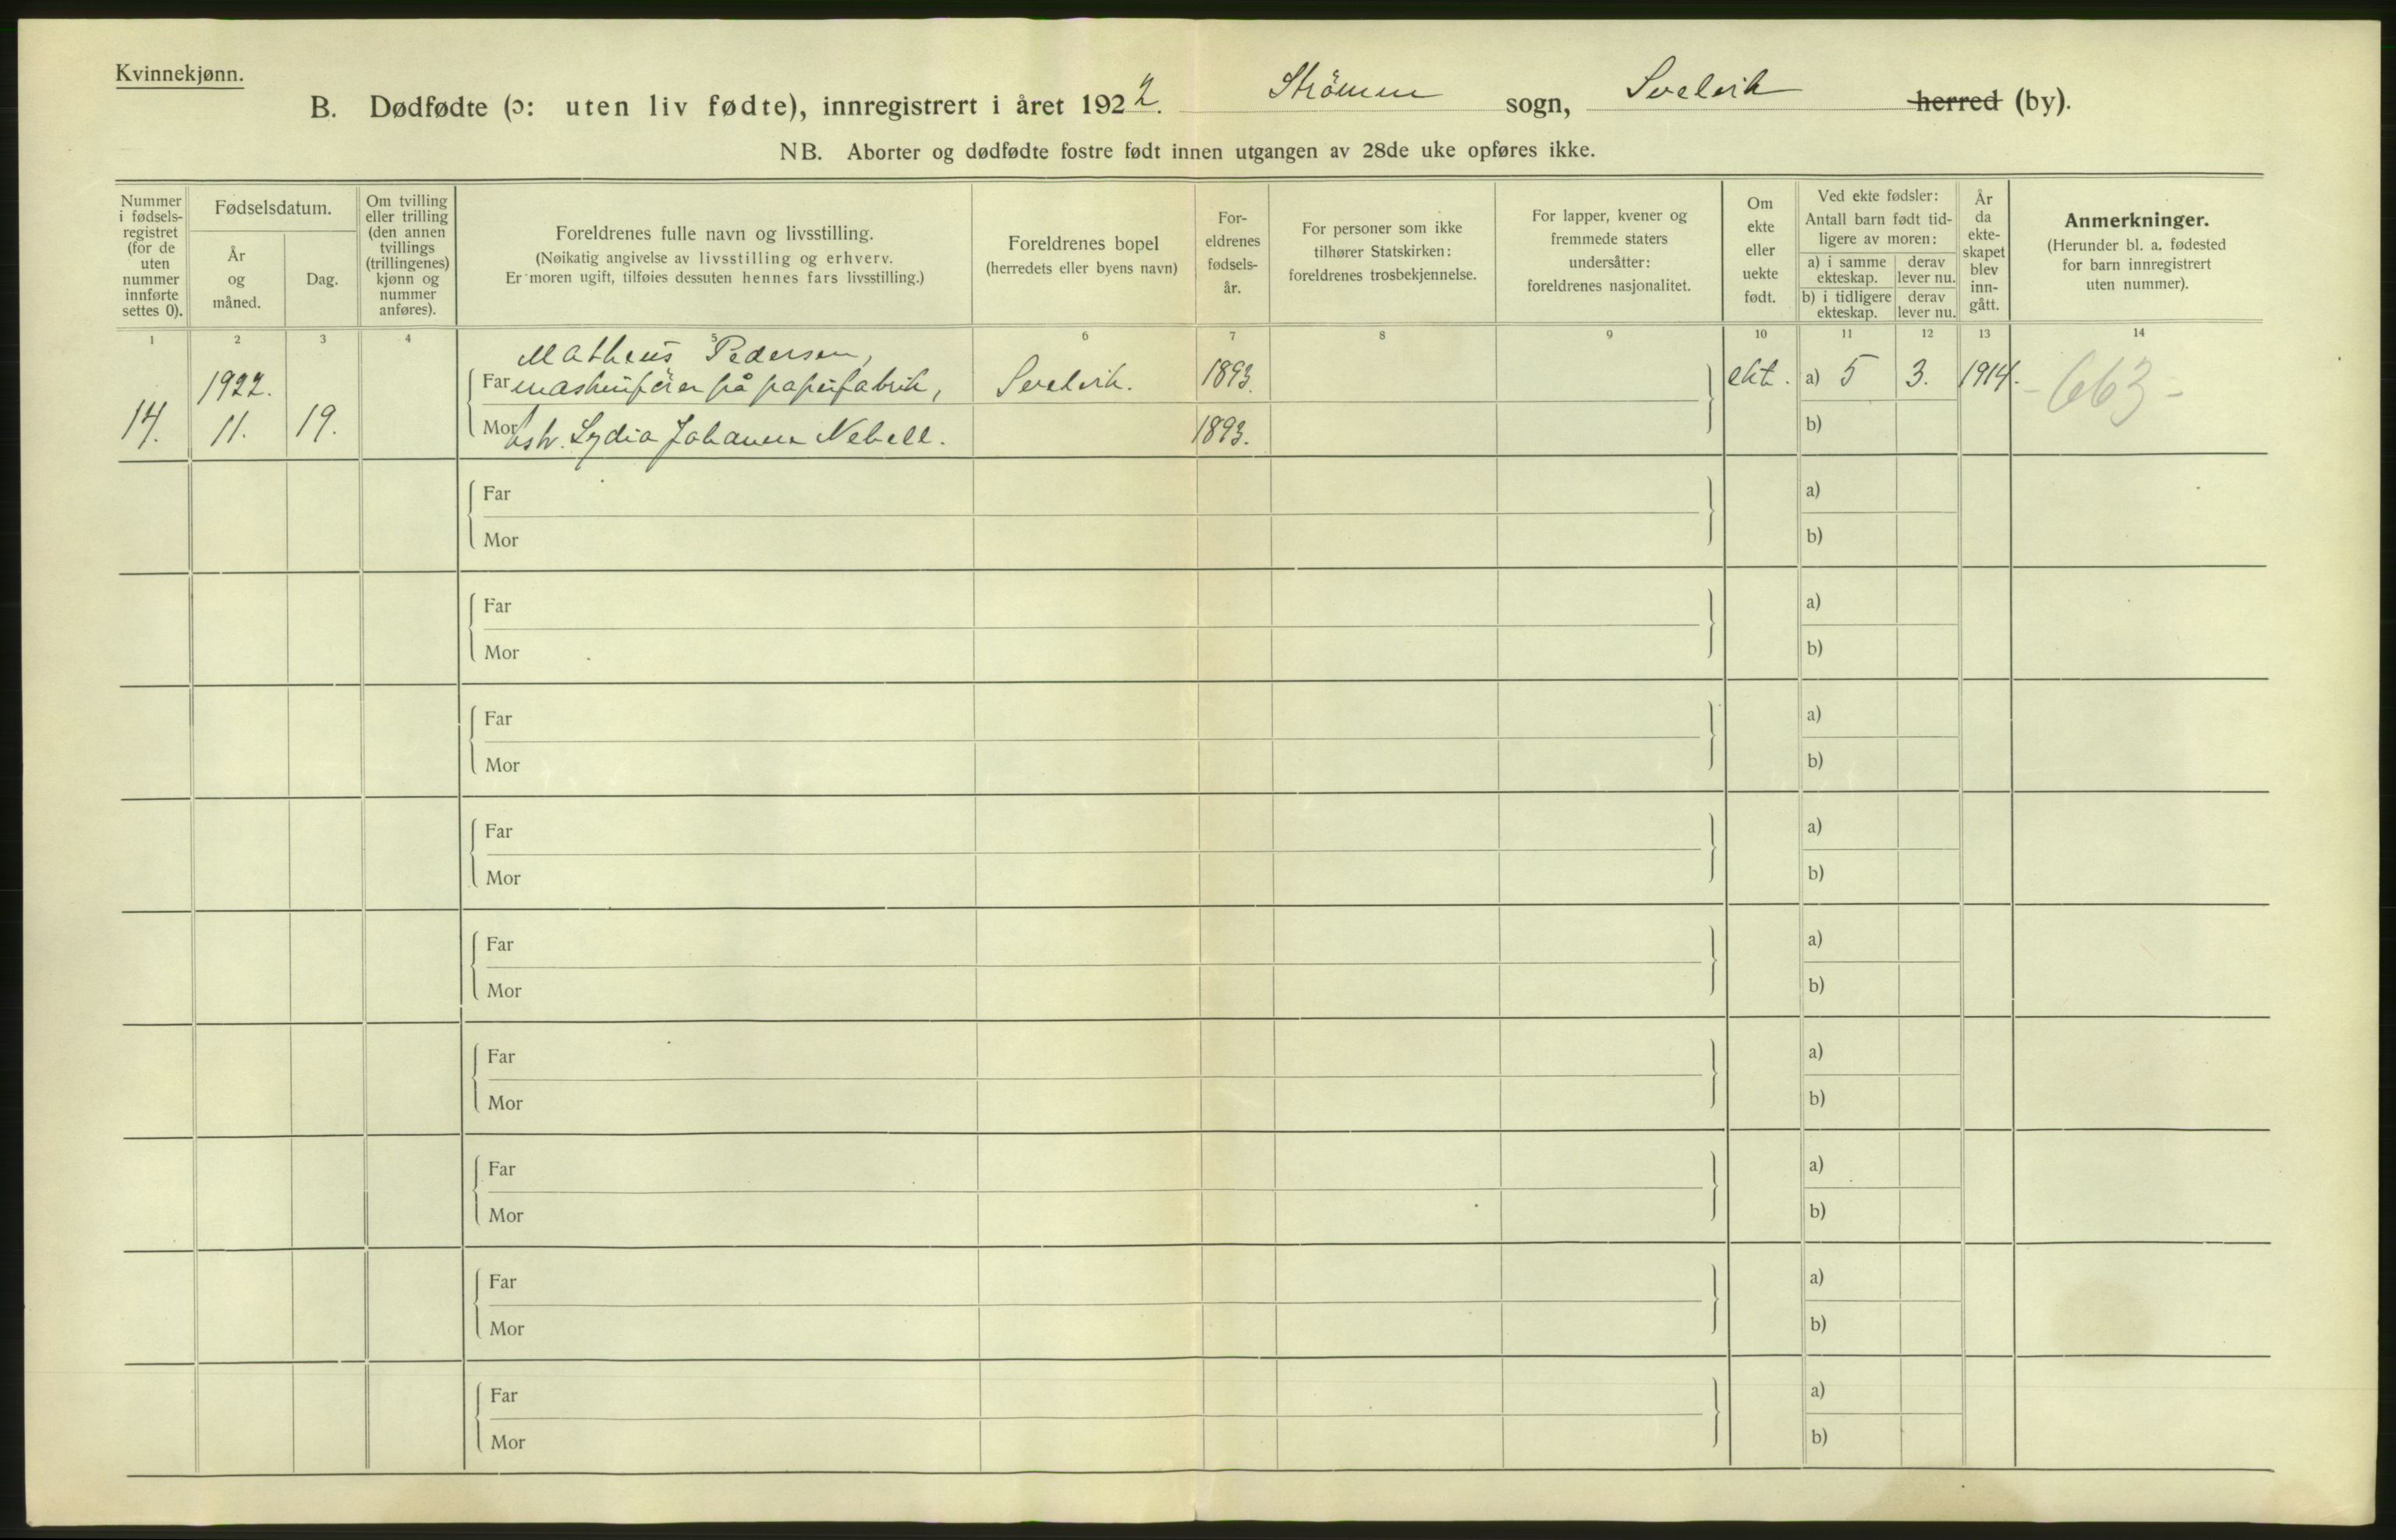 Kvinnekjønn.
B. Dødfødte (ɔ: uten liv fødte), innregistrert i året 1922. Strömm sogn, Svelvik herred (by).
NB. Aborter og dødfødte fostre født innen utgangen av 28de uke opføres ikke.
Nummer i fødsels- registret (for de uten nummer innførte settes 0).
Fødselsdatum.
År og måned.
Dag.
Om tvilling eller trilling (den annen tvillings (trillingenes) kjønn og nummer anføres).
Foreldrenes fulle navn og livsstilling.
(Nøikatig angivelse av livsstilling og erhverv.
Er moren ugift, tilføies dessuten hennes fars livsstilling.)
Foreldrenes bopel
(herredets eller byens navn)
For- eldrenes fødsels- år.
For personer som ikke tilhører Statskirken: foreldrenes trosbekjennelse.
For lapper, kvener og fremmede staters undersåtter: foreldrenes nasjonalitet.
Om ekte eller uekte født.
Ved ekte fødsler:
Antall barn født tid- ligere av moren:
a) i samme ekteskap. derav lever nu.
b) i tidligere ekteskap. derav lever nu.
År da ekte- skapet blev inn- gått.
Anmerkninger.
(Herunder bl. a. fødested for barn innregistrert uten nummer).
1 2 3 4 5 6 7 8 9 10 11 12 13 14
Matheus Pedersen,
1922. Far maskinförer på papirfabrik, Svelvik. 1893. ekt. a) 5 3. 1914. -663-
14. 11. 19. Mor Lydia Johanne Nebell. 1893. b)
Far a)
Mor b)
Far a)
Mor b)
Far a)
Mor b)
Far a)
Mor b)
Far a)
Mor b)
Far a)
Mor b)
Far a)
Mor b)
Far a)
Mor b)
Far a)
Mor b)